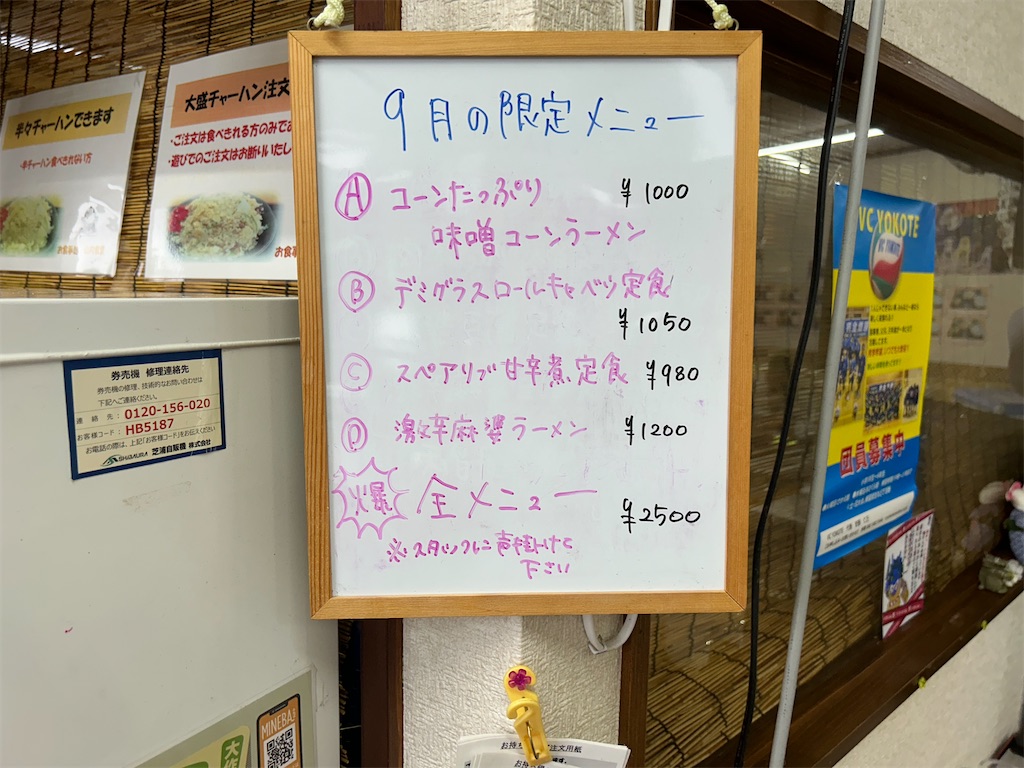 9月の限定メニュー
Ⓐ コーンたっぷり ¥1000
味噌コーンラーメン
Ⓑ デミグラスロールキャベツ定食
¥1050
Ⓒ スペアリブ甘辛煮定食 ¥980
Ⓓ 激辛麻婆ラーメン ¥1200
爆 全メニュー ¥2500
※スタッフに声掛けて
下さい
半々チャーハンできます
・半チャーハン食べきれない方
大盛チャーハン注文
・ご注文は食べきれる方のみでお
・遊びでのご注文はお断りいたし
お食事
券売機 修理連絡先
券売機の修理、技術的なお問い合わせは
下記へご連絡ください。
連絡先：0120-156-020
お客様コード：HB5187
お電話の際は、上記「お客様コード」をお伝えください
SHIBAURA 芝浦自販機 株式会社
MINEBA
VC YOKOTE
団員募集中
お持ち 注文用紙